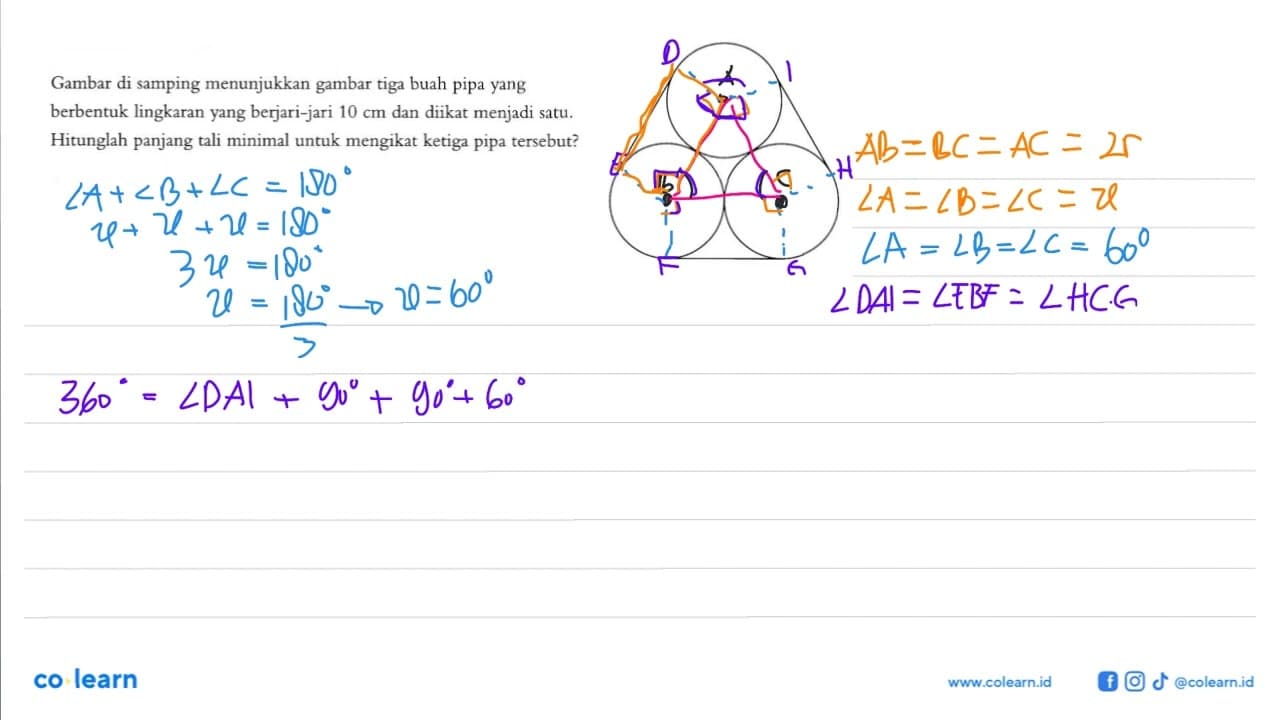 Gambar di samping menunjukkan gambar tiga buah pipa yang
berbentuk lingkaran yang berjari-jari 10 cm dan diikat menjadi satu.
Hitunglah panjang tali minimal untuk mengikat ketiga pipa tersebut?
∠A + ∠B + ∠C = 180°
x + x + x = 180°
3x = 180°
x = 180°/3 → x = 60°
360° = ∠DAI + 90° + 90° + 60°
D
A
I
E
B
C
H
F
G
AB = BC = AC = 2r
∠A = ∠B = ∠C = x
∠A = ∠B = ∠C = 60°
∠DAI = ∠EBF = ∠HCG
co learn
www.colearn.id
@colearn.id